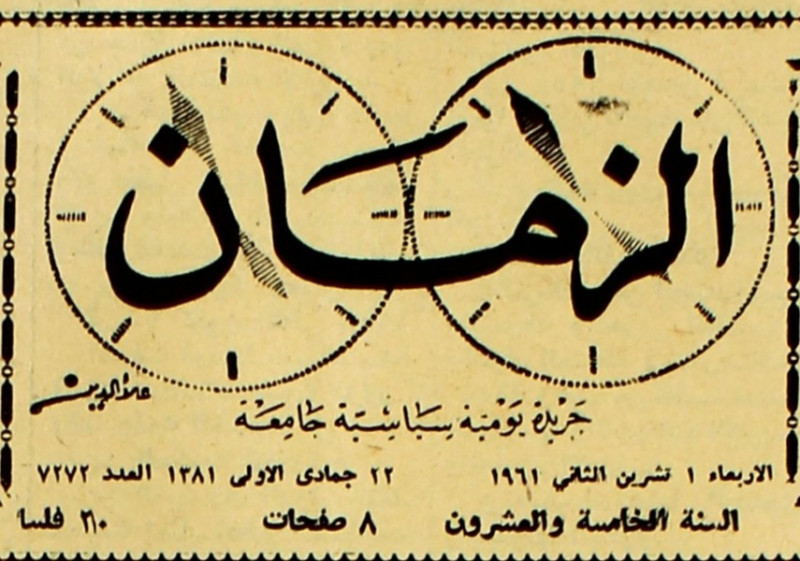 الزمان
علاء الدين
جريدة يومية سياسية جامعة
الاربعاء ١ تشرين الثاني ١٩٦١ ٢٢ جمادى الاولى ١٣٨١ العدد ٧٢٧٢
السنة الخامسة والعشرون ٨ صفحات فلسا